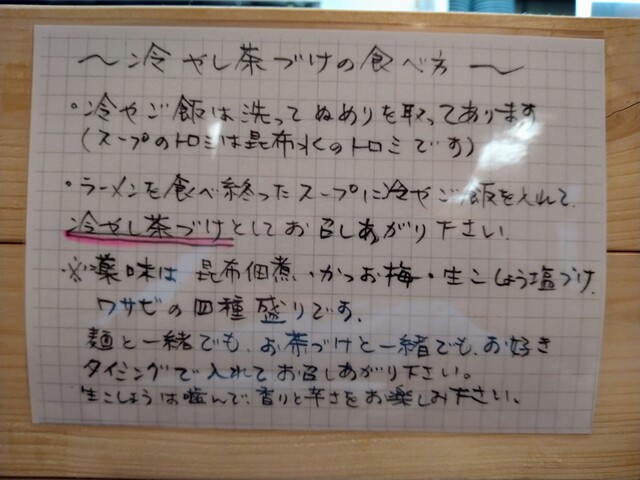 〜冷やし茶づけの食べ方〜
・冷やご飯は洗ってぬめりを取ってあります
(スープのトロミは昆布水のトロミです)
・ラーメンを食べ終ったスープに冷やご飯を入れて、
冷やし茶づけとしてお召しあがり下さい。
※薬味は昆布佃煮・かつお梅・生こしょう塩づけ、
ワサビの四種盛りです。
麺と一緒でも、お茶づけと一緒でも、お好き
タイミングで入れてお召しあがり下さい。
生こしょうは噛んで、香りと辛さをお楽しみ下さい。